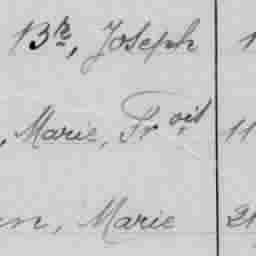 Bte, Joseph 1
, Marie, Frois 11
en, Marie 21